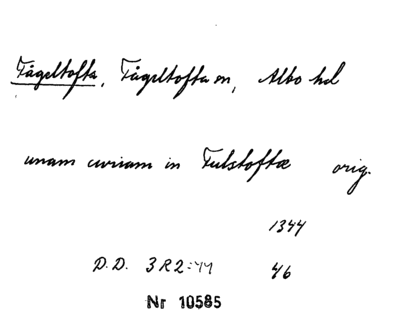 Fågeltofta, Fågeltofta sn, Albo hd
unam curiam in Fulstoftæ orig.
1344
D.D. 3R2:44 46
Nr 10585